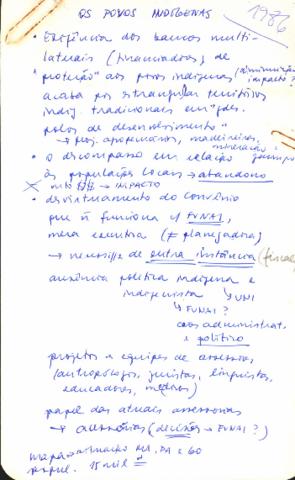 OS POVOS INDÍGENAS
1986
• Exigência dos bancos multi-
laterais (financiadores) de
"proteção" aos povos indígenas (diminuição impacto?)
acaba por estrangular territórios
indíg. tradicionais em "gdes.
polos de desenvolvimento"
→ proj. agropecuários, madeireiros, mineração
• o descompasso em relação
às populações locais → abandono
→ IMPACTO
• desvirtuamento do convênio
que ñ funciona c/ FUNAI,
mera executora (≠ planejadora)
→ de outra instância
ausência política indígena e
indigenista → UNI
↳ FUNAI?
administrat.
e político
projetos e equipes de assessoria
(antropólogos, juristas, linguistas,
educadores, médicos)
papel dos atuais assessores
→ (decisões → FUNAI?)
15 mil =